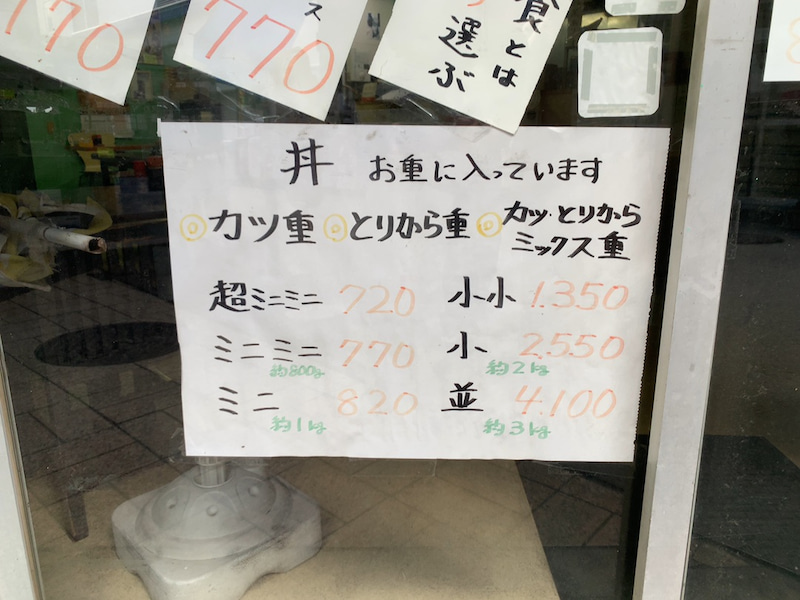 770
ス
770
食とは
選ぶ
丼 お重に入っています
◎カツ重 ◎とりから重 ◎カツ・とりから
ミックス重
超ミニミニ 720 小小 1.350
ミニミニ 770 小 2.550
約800g 約2kg
ミニ 820 並 4.100
約1kg 約3kg